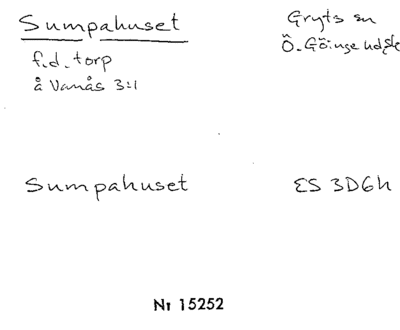 Sumpahuset
Gryts sn
f.d. torp
Ö. Göinge hd sk
å Vanås 3:1
Sumpahuset
ES 3D6h
Nr 15252